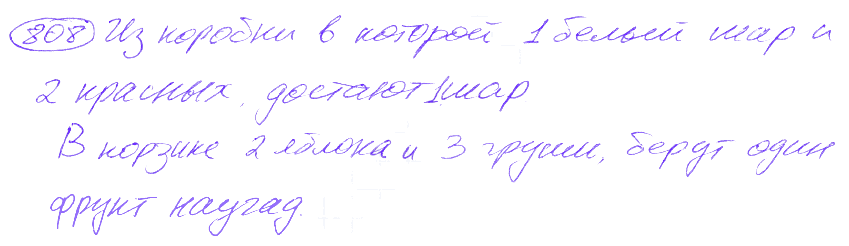 808 Из коробки в которой 1 белый шар и
2 красных, достают 1 шар
В корзине 2 яблока и 3 груши, берут один
фрукт наугад.